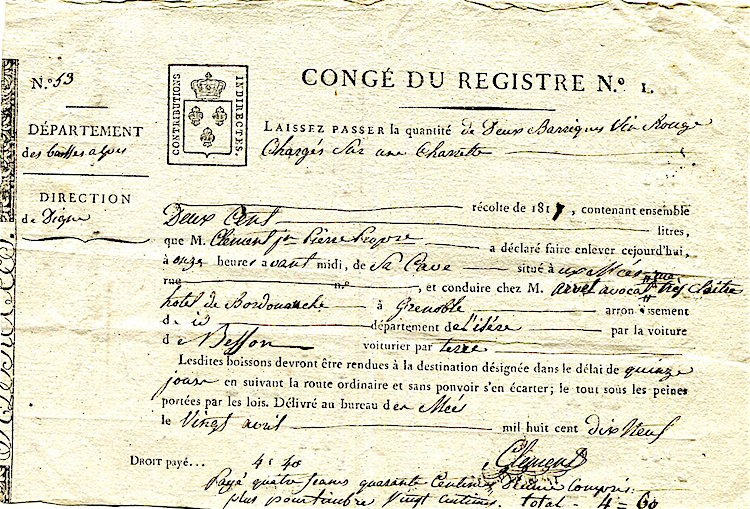 N.° 53
DÉPARTEMENT
des basses alpes
DIRECTION
de Digne
CONTRIBUTIONS INDIRECTES.
CONGÉ DU REGISTRE N.° 1.
LAISSEZ PASSER la quantité de Deux Barriques Vin Rouge
Chargés Sur une Charette
récolte de 1817, contenant ensemble
Deux Cent litres,
que M. Clément Pierre a déclaré faire enlever cejourd'hui,
à onze heures avant midi, de Sa Cave situé à
rue n.° , et conduire chez M. avocat
hotel de à Grenoble arrondissement
d département de l'isére par la voiture
de Besson voiturier par terre
Lesdites boissons devront être rendues à la destination désignée dans le délai de quinze
jours en suivant la route ordinaire et sans pouvoir s'en écarter; le tout sous les peines
portées par les lois. Délivré au bureau des Mées
le Vingt avril mil huit cent dix Neuf
Clément
DROIT payé... 4: 40
Payé quatre francs quarante Centimes Décime Compris.
plus pour timbre Vingt centimes. total = 4 = 60